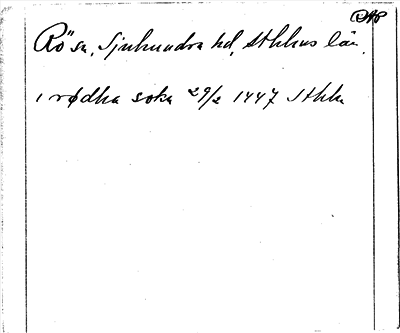 DAP
Rö sn, Sjuhundra hd, Sthlms län.
i rødha sokn 29/2 1447 Sthlm